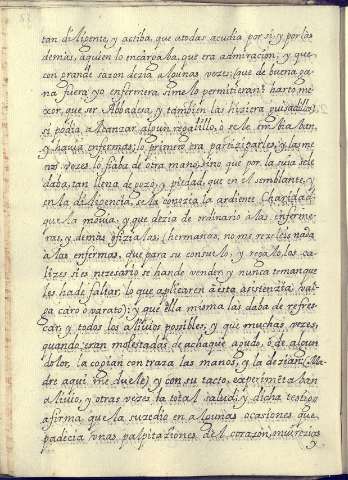 tan dilijente, y actiba, que atodas acudia por si, y por las
demas, aquien lo encargaba, que era admiracion; y que
con grande razon dezia algunas vezes: (que de buena ga
na fuera yo enfermera, si me lo permitieran; harto me
xor, que ser Abbadesa, y tambien las hiziera guisadillos;
si podia alcanzar algun regalillo, o se le embiaban,
y havia enfermas, lo primero era partizirparles, y las me
nos vezes, lo fiaba de otra mano, sino que por la suia se le
daba, tan llena de gozo, y piedad, que en el semblante, y
en la dilijencia, se la conozia la ardiente Charidad
que la movia, y que dezia de ordinario a las enferme-
ras, y demas ofizialas, (hermanas, no me rezeleis nada
a las enfermas, que para su consuelo, y regalo, los ca-
lizes si es nezesario se han de vender, y nunca teman que
les hade faltar, lo que aplicaren à esta asistenzia, val-
ga caro, o varato); y que ella misma las daba de refres-
car, y todos los alivios posibles, y que muchas vezes,
quando eran molestadas de achaque agudo, ó de algun
dolor, la cogian con traza las manos, y la dezian: (Ma-
dre aqui me duele) y con su tacto, experimētaban
alivio, y otras vezes la total salud; y dicha testigo
afirma que la suzedio en algunas ocasiones que
padecia unas palpitaziones del corazon, mui rezias